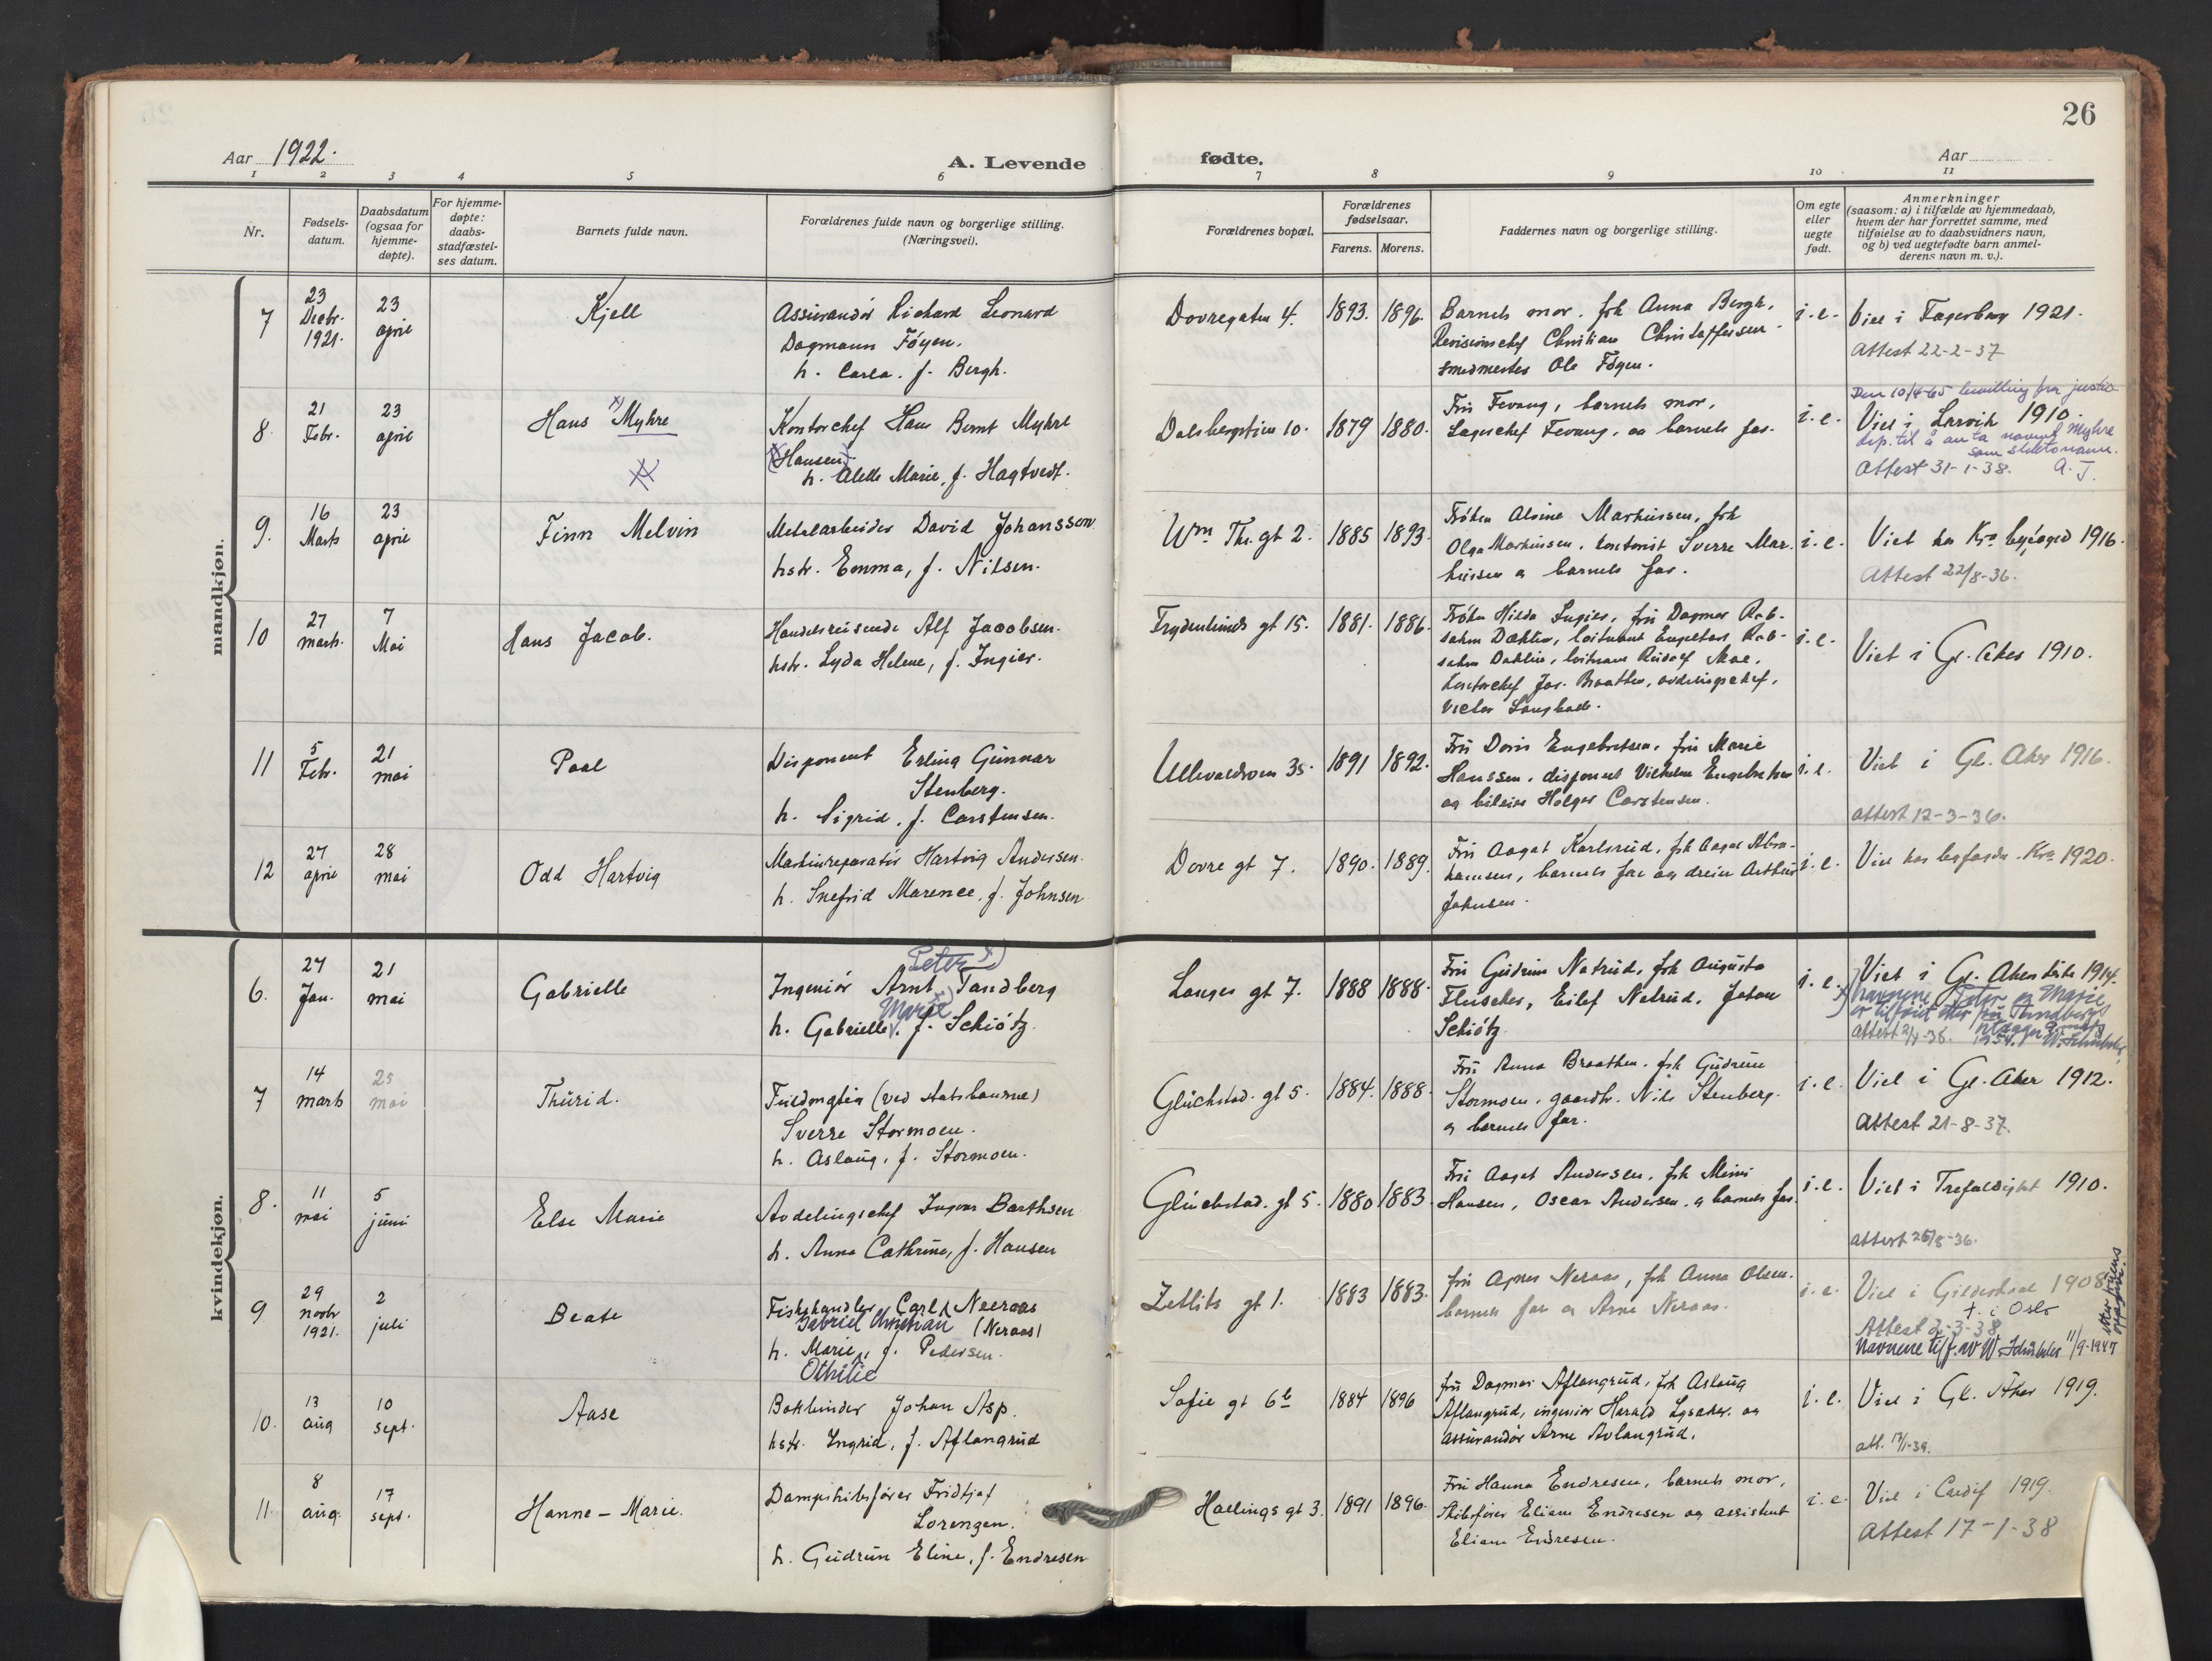 26
Aar 1922.
A. Levende fødte.
Aar
1 2 3 4 5 6 7 8 9 10 11
Nr.
Fødsels-
datum.
Daabsdatum
(ogsaa for
hjemme-
døpte).
For hjemme-
døpte:
daabs-
stadfæstel-
ses datum.
Barnets fulde navn.
Forældrenes fulde navn og borgerlige stilling.
(Næringsvei).
Forældrenes bopæl.
Forældrenes
fødselsaar.
Farens. Morens.
Faddernes navn og borgerlige stilling.
Om egte
eller
uegte
født.
Anmerkninger
(saasom: a) i tilfælde av hjemmedaab,
hvem der har forrettet samme, med
tilføielse av to daabsvidners navn,
og b) ved uegtefødte barn anmel-
derens navn m. v.).
mandkjøn.
7
23
Decbr.
1921.
23
april
Kjell
Assurandør Richard Leonard
Dagmann Föyen.
h. Carla. f. Bergh.
Dovregaten 4.
1893. 1896.
Barnets mor. frk Anna Bergh.
Revisionschef Christian Christoffersen.
smedmester Ole Föyen.
i. e.
Viet i Fagerborg 1921.
Attest 22-2-37
8
21
Febr.
23
april
Hans x) Myhre
Kontorchef Hans Bernt Myhre
Hansen
h. Alette Marie, f. Hagtvedt.
Dalsbergstien 10.
1879 1880.
Fru Fevang, barnets mor,
Lagerchef Fevang, og barnets far.
i. e.
Den 10/4-65 bevilling fra justis-
Viet i Larvik 1910.
dep. til å anta navnet Myhre
som slektsnavn.
Attest 31-1-38. A. J.
9.
16
Marts
23
april
Finn Melvin
Metalarbeider David Johansson
hstr. Emma, f. Nilsen.
Wm Thr. gt 2.
1885 1893.
Fröken Alvine Markussen, frk
Olga Markussen, kontorist Sverre Mar-
kussen og barnets far.
i. e.
Viet hos Kra byfoged 1916.
Attest 22/8-36.
10
27
marts
7
Mai
Hans Jacob.
Handelsreisende Alf Jacobsen.
hstr. Lyda Helene, f. Ingier.
Frydenlunds gt 15.
1881. 1886.
Fröken Hilda Ingier, fru Dagmar Rob-
sahm Dahlin, loitnant Engelhart Rob-
sahm Dahlin, loitnant Rudolf Moe,
kontorchef Jac. Braathen, avdelingschef,
Victor
i. e.
Viet i Gl. Aker 1910.
11
5
Febr.
21
mai
Paal
Disponent Erling Gunnar
Stenberg.
h. Sigrid. f. Carstensen.
Ullevaalsveien 35.
1891 1892.
Fru Doris Engebretsen, fru Marie
Hanssen, disponent Vilhelm Engebretsen
og Holger Carstensen.
i. e.
Viet i Gl. Aker 1916.
attest 12-3-36.
12
27
april
28
mai
Odd Hartvig
Maskinreparatör Hartvig Andersen.
h. Snefrid Marence, f. Johnsen
Dovre gt 7.
1890. 1889.
Fru Aagot Karlsrud, frk Aagot Abra-
hamsen, barnets far og dreier Arthur
Johnsen.
i. e.
Viet hos byfogden. Kra 1920.
kvindekjøn.
6.
27
Jan.
21
mai
Gabrielle
Peter x)
Ingeniör Arnt Tandberg
Marie x)
h. Gabrielle. f. Schiötz.
Langes gt 7.
1888 1888.
Fru Gudrun Natrud, frk Augusta
Fleischer, Eilef Natrud, Johan
Schiötz
i. e.
Viet i Gl. Akers kirke 1914.
x) navnene Peter og Marie
er tilføiet etter fru Tandbergs
attest 2/4-36. 1954. W. Schübeler
7
14
marts
25
mai
Thurid.
Fuldmgtig (ved statsbanene)
Sverre Stormoen.
h. Aslaug, f. Stormoen.
Glückstad. gt 5.
1884. 1888.
Fru Anna Braathen. frk Gudrun
Stormoen, gaardbr. Nils Stenberg.
og barnets far.
i. e.
Viet i Gl. Aker 1912.
Attest 21-8-37.
8.
11
mai
5
juni
Else Marie
Avdelingschef Ingvar Barthsen
h. Anna Cathrine, f. Hansen
Glückstad. gt 5.
1880 1883.
Fru Aagot Andersen, frk Mimi
Hansen, Oscar Andersen, og barnets far.
i. e.
Viet i Trefoldighet 1910.
attest 25/8-36.
9
29
novbr
1921.
2
juli
Beate
Fiskehandler Carl Neeraas
Gabriel Christian (Neraas)
h. Marie, f. Pedersen.
Othilie
Zetlitz gt 1.
1883 1883.
fru Agnes Neraas, frk Anna Olsen.
barnets far og Arne Neraas.
i. e.
Viet i Gildeskaal 1908
t. i Oslo
Attest 2-3-38
Navnene tilf. av W. Schübeler 11/9-1947
10.
13
aug
10
sept.
Aase
Bokbinder Johan Asp.
hstr. Ingrid, f. Aflangrud
Sofie gt 6b
1884 1896
fru Dagmar Aflangrud, frk Aslaug
Aflangrud, ingeniør Harald Lysaker. og
assurandör Arne Avlangrud.
i. e.
Viet i Gl. Aker 1919.
att. 13/1-39.
11.
8
aug.
17
sept.
Hanne-Marie.
Dampskibsfører Fridtjof
Lorenzen.
h. Gudrun Eline, f. Endresen
Hallings gt 3.
1891 1896.
Fru Hanna Endresen, barnets mor,
Skibsfører Eliam Endresen og assistent
Eliam Endresen.
i. e.
Viet i Cardif 1919.
Attest 17-1-38